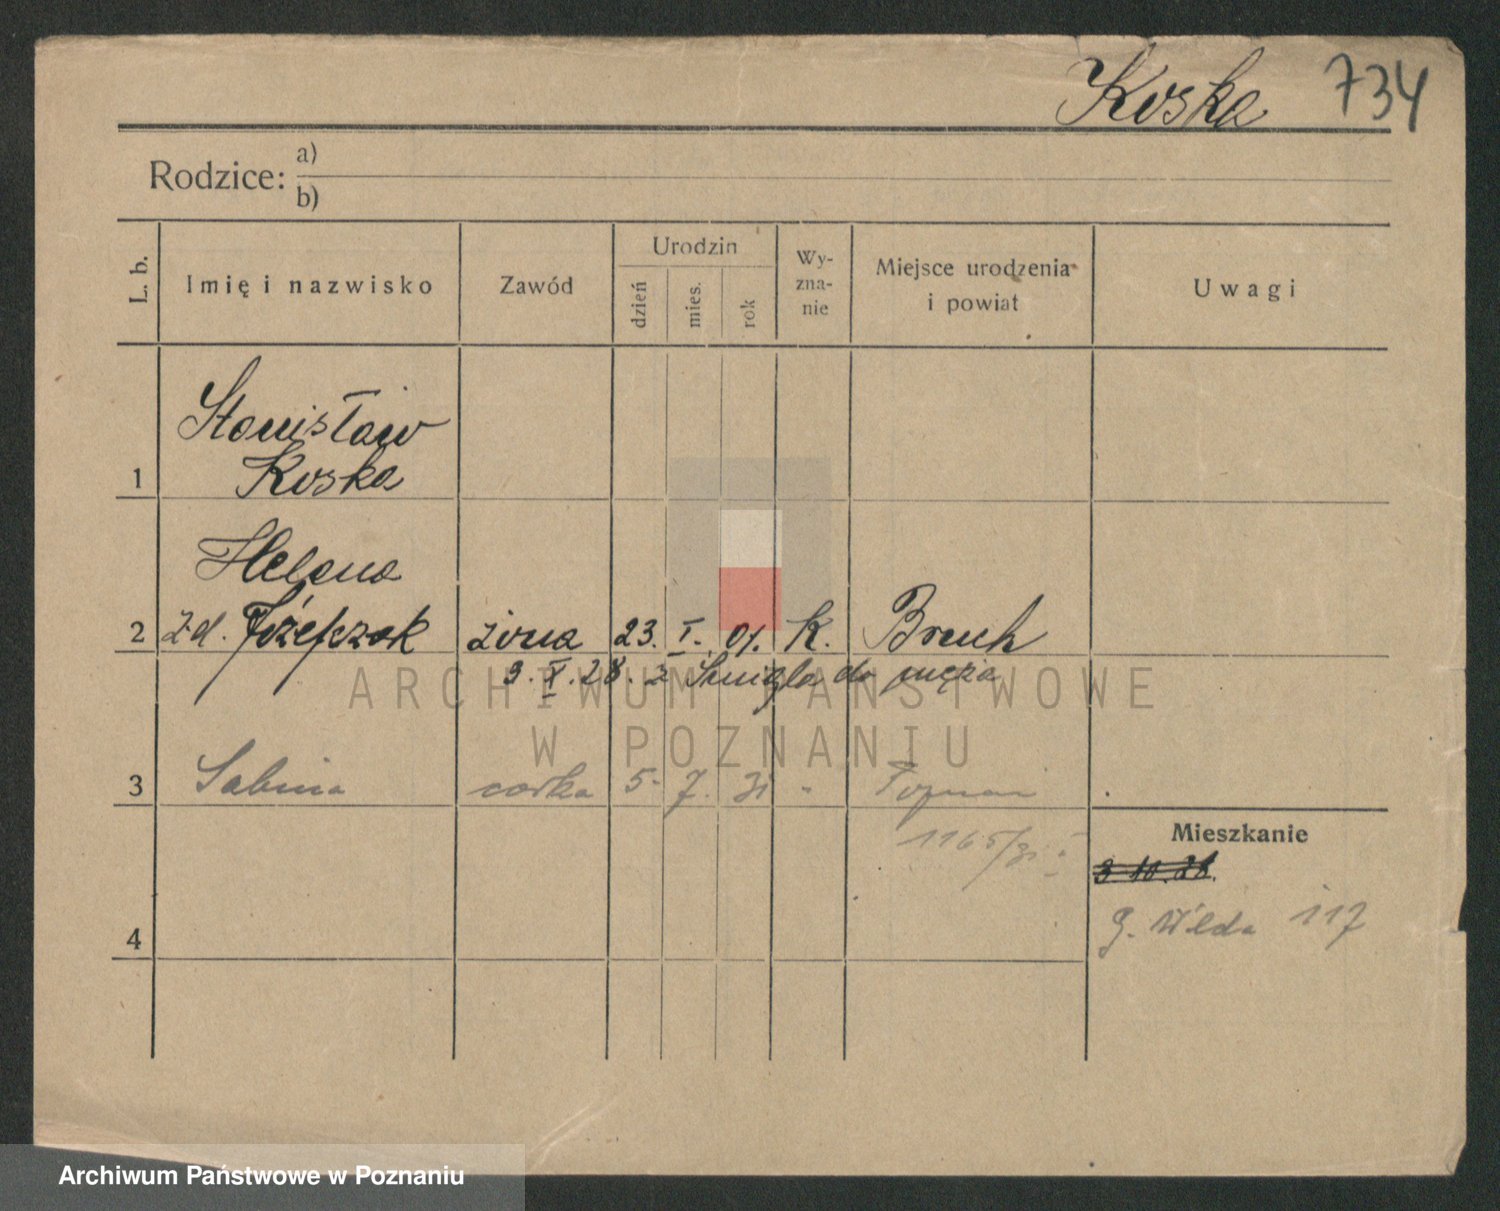 Koska 734
Rodzice: a)
b)
L. b. Imię i nazwisko Zawód Urodzin dzień mies. rok Wy-zna-nie Miejsce urodzenia i powiat Uwagi
Stanisław
1 Koska
Helena
2 z d. Józefczak żona 23. I. 01. K. Bruch
9. X. 28. z Śmigla do męża
ARCHIWUM PAŃSTWOWE
W POZNANIU
3 Sabina corka 5. 7. 31 " Poznan
1165/31
Mieszkanie
3 10. 28.
4 G. Wilda 117
Archiwum Państwowe w Poznaniu